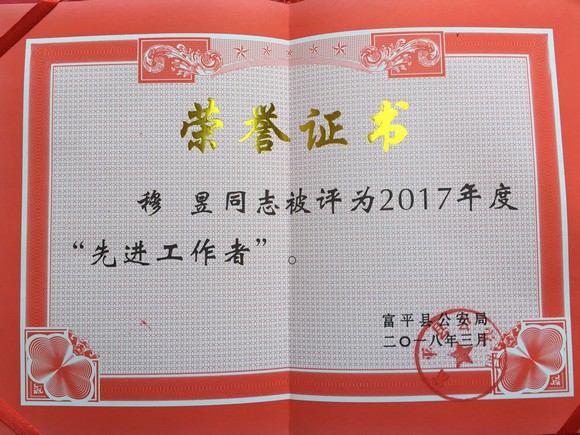 荣誉证书
穆 昱同志被评为2017年度
“先进工作者”。
富平县公安局
二〇一八年三月